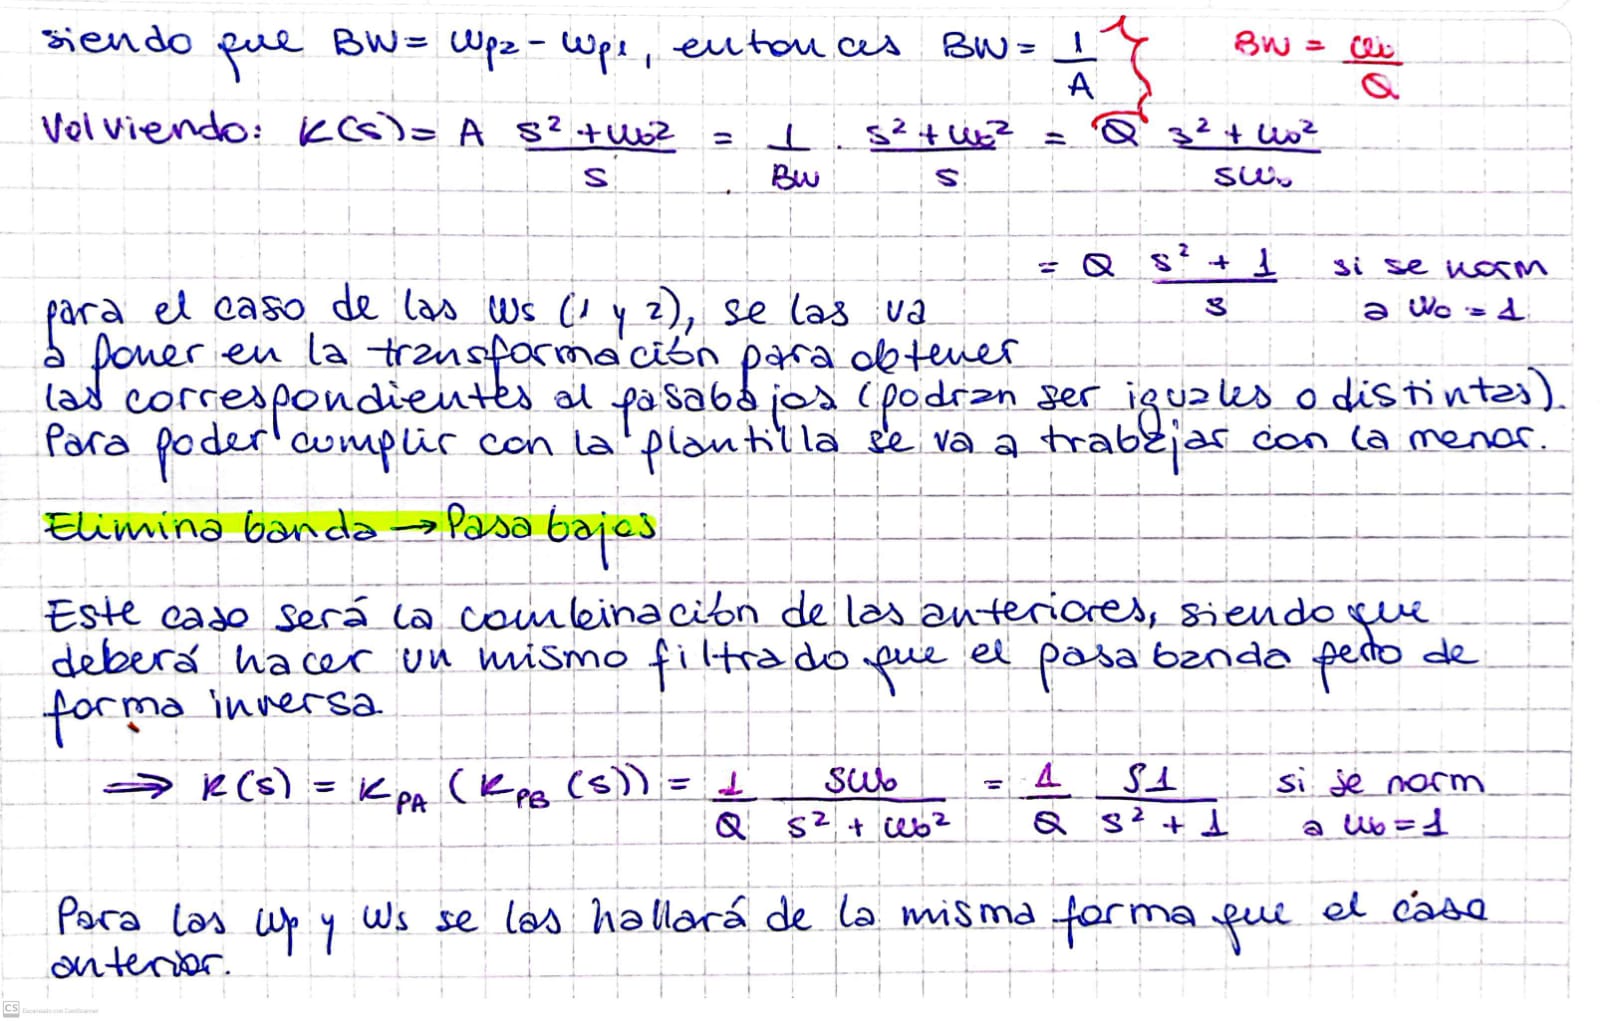 siendo que BW = ωp2 - ωp1, entonces BW = 1/A } BW = ω0/Q
Volviendo: K(s) = A (s² + ω0²)/s = 1/BW · (s² + ω0²)/s = Q (s² + ω0²)/(sω0)
= Q (s² + 1)/s si se norm a ω0 = 1
para el caso de las ωs (1 y 2), se las va
a poner en la transformación para obtener
las correspondientes al pasabajos (podran ser iguales o distintas).
Para poder cumplir con la plantilla se va a trabajar con la menor.
Elimina banda → Pasa bajos
Este caso será la combinación de las anteriores, siendo que
deberá hacer un mismo filtrado que el pasa banda pero de
forma inversa
⇒ K(s) = K_PA (K_PB (s)) = 1/Q · sω0/(s² + ω0²) = 1/Q · S1/(s² + 1) si se norm a ω0 = 1
Para las ωp y ωs se las hallará de la misma forma que el caso
anterior.
CS Escaneado con CamScanner